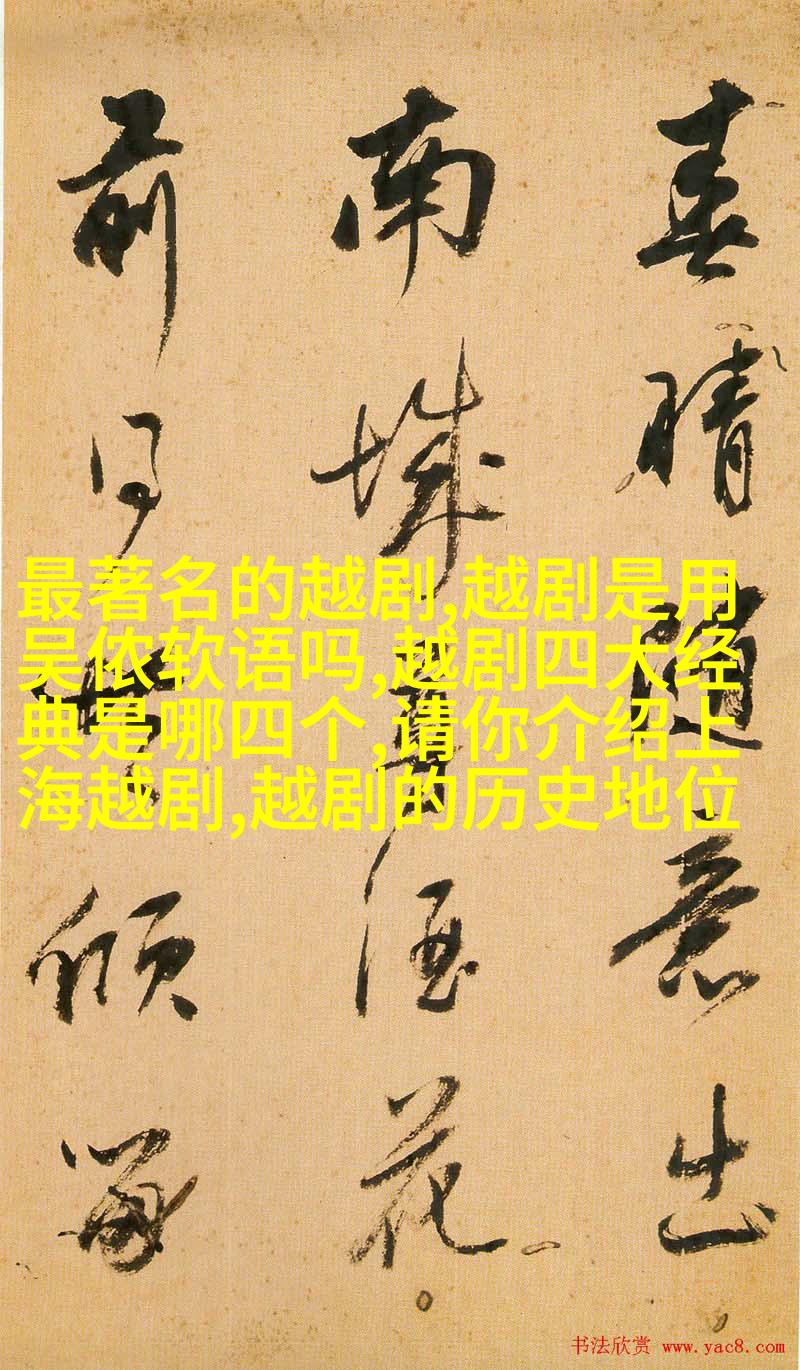 春晴随意出
南城尊酒花
前同倾
最著名的越剧,越剧是用
吴侬软语吗,越剧四大经
典是哪四个,请你介绍上
海越剧,越剧的历史地位
书法欣赏 www.yac8.com